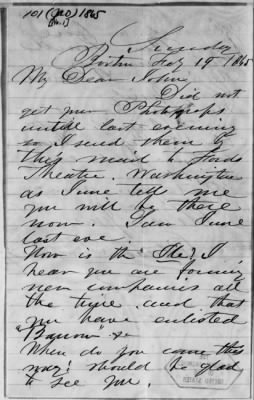 101 (JAO) 1865
Sunday
Boston Feb 19 1865
My Dear John
Did not
get your Photographs
untill last evening
so I send them by
this mail to Fords
Theatre. Washington
as June tell me
you will be there
now. Saw June
last eve.
How is the Ile? I
hear you are forming
new companies all
the time and that
you have enlisted
"Barron" &c
When do you come this
way? should be glad
to see you.